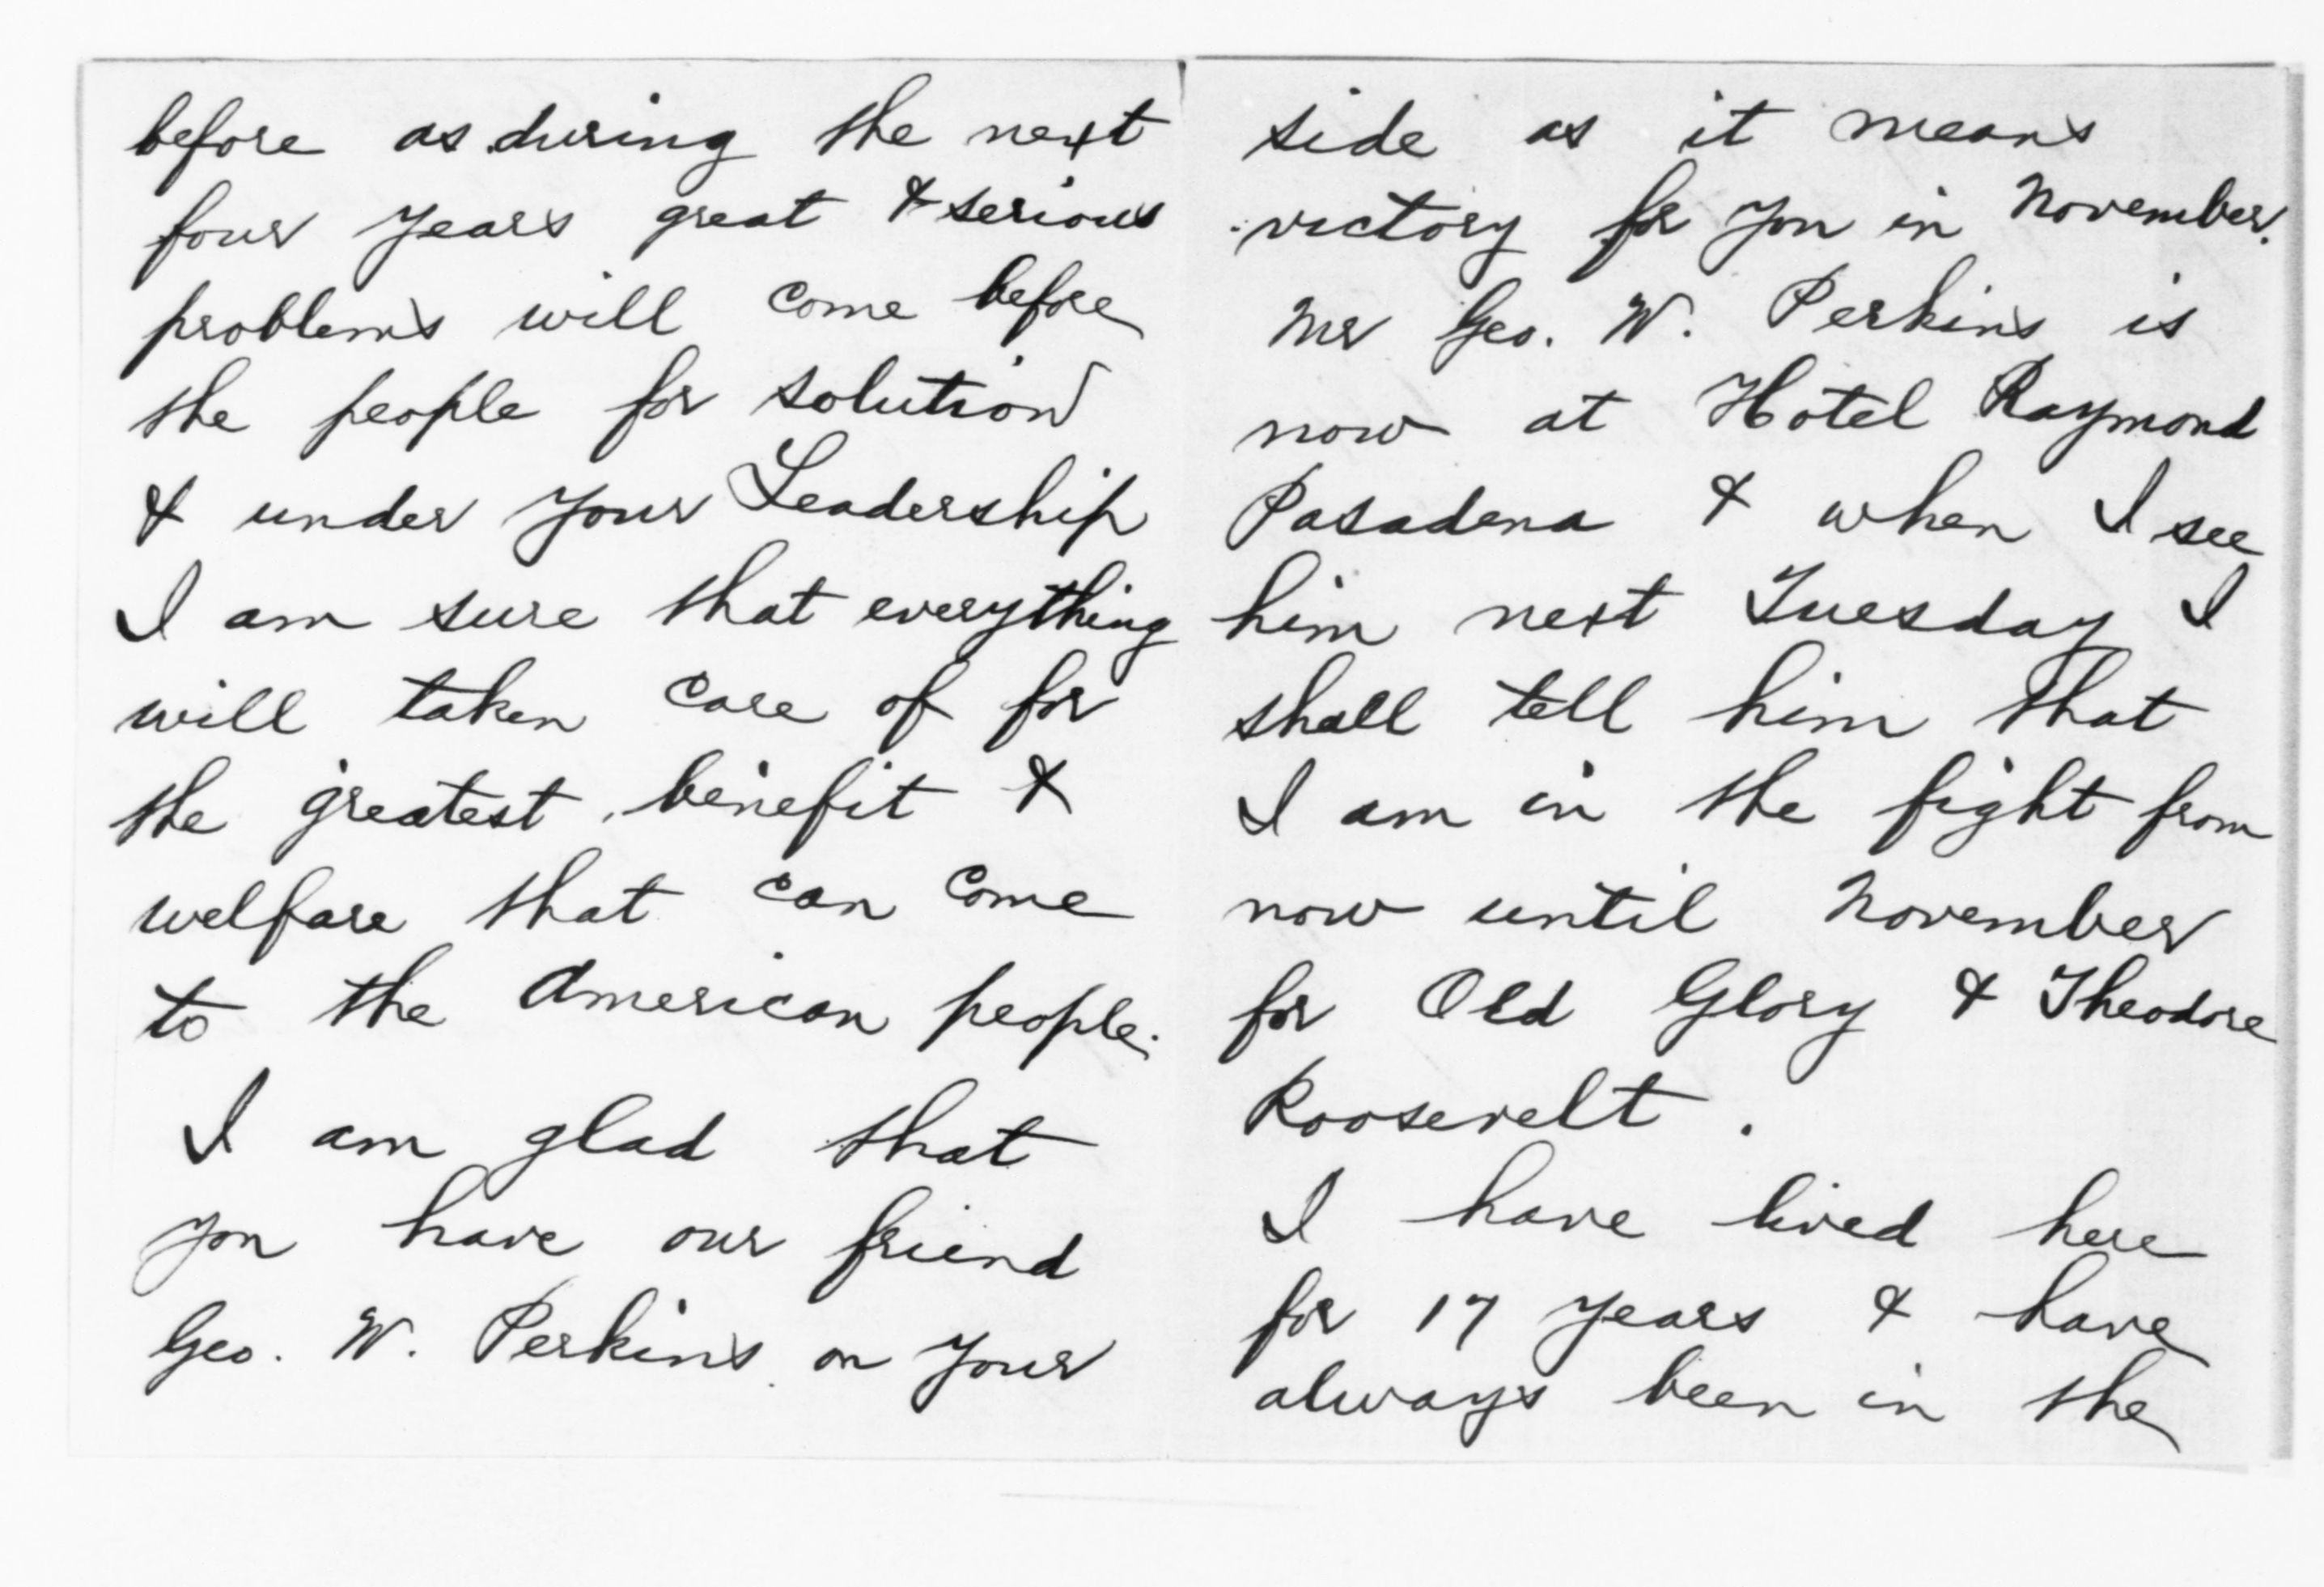 before as during the next
four years great & serious
problems will come before
the people for solution
& under your Leadership
I am sure that everything
will taken care of for
the greatest benefit &
welfare that can come
to the American people.
I am glad that
you have our friend
Geo. W. Perkins on your
side as it means
victory for you in November.
Mr Geo. W. Perkins is
now at Hotel Raymond
Pasadena & when I see
him next Tuesday I
shall tell him that
I am in the fight from
now until November
for Old Glory & Theodore
Roosevelt.
I have lived here
for 17 years & have
always been in the